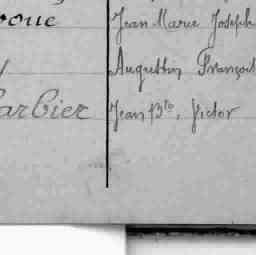 Jean Marie Joseph
Augustin François
Barbier Jean Bte, Victor